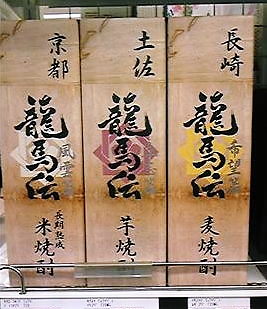 京都
龍馬伝
風雲篇
長期熟成
米焼酎
土佐
龍馬伝
芋焼酎
長崎
龍馬伝
希望篇
麦焼酎